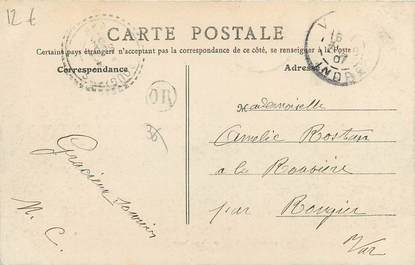 12 €
CARTE POSTALE
Certains pays étrangers n'acceptant pas la correspondance de ce côté, se renseigner à la Poste
Correspondance
Adresse
16
07
INDRE
OR
36
Mademoiselle
Amélie Rostan
a la Rouvière
par Rougier
Var
Gracieux souvenir
M. C.